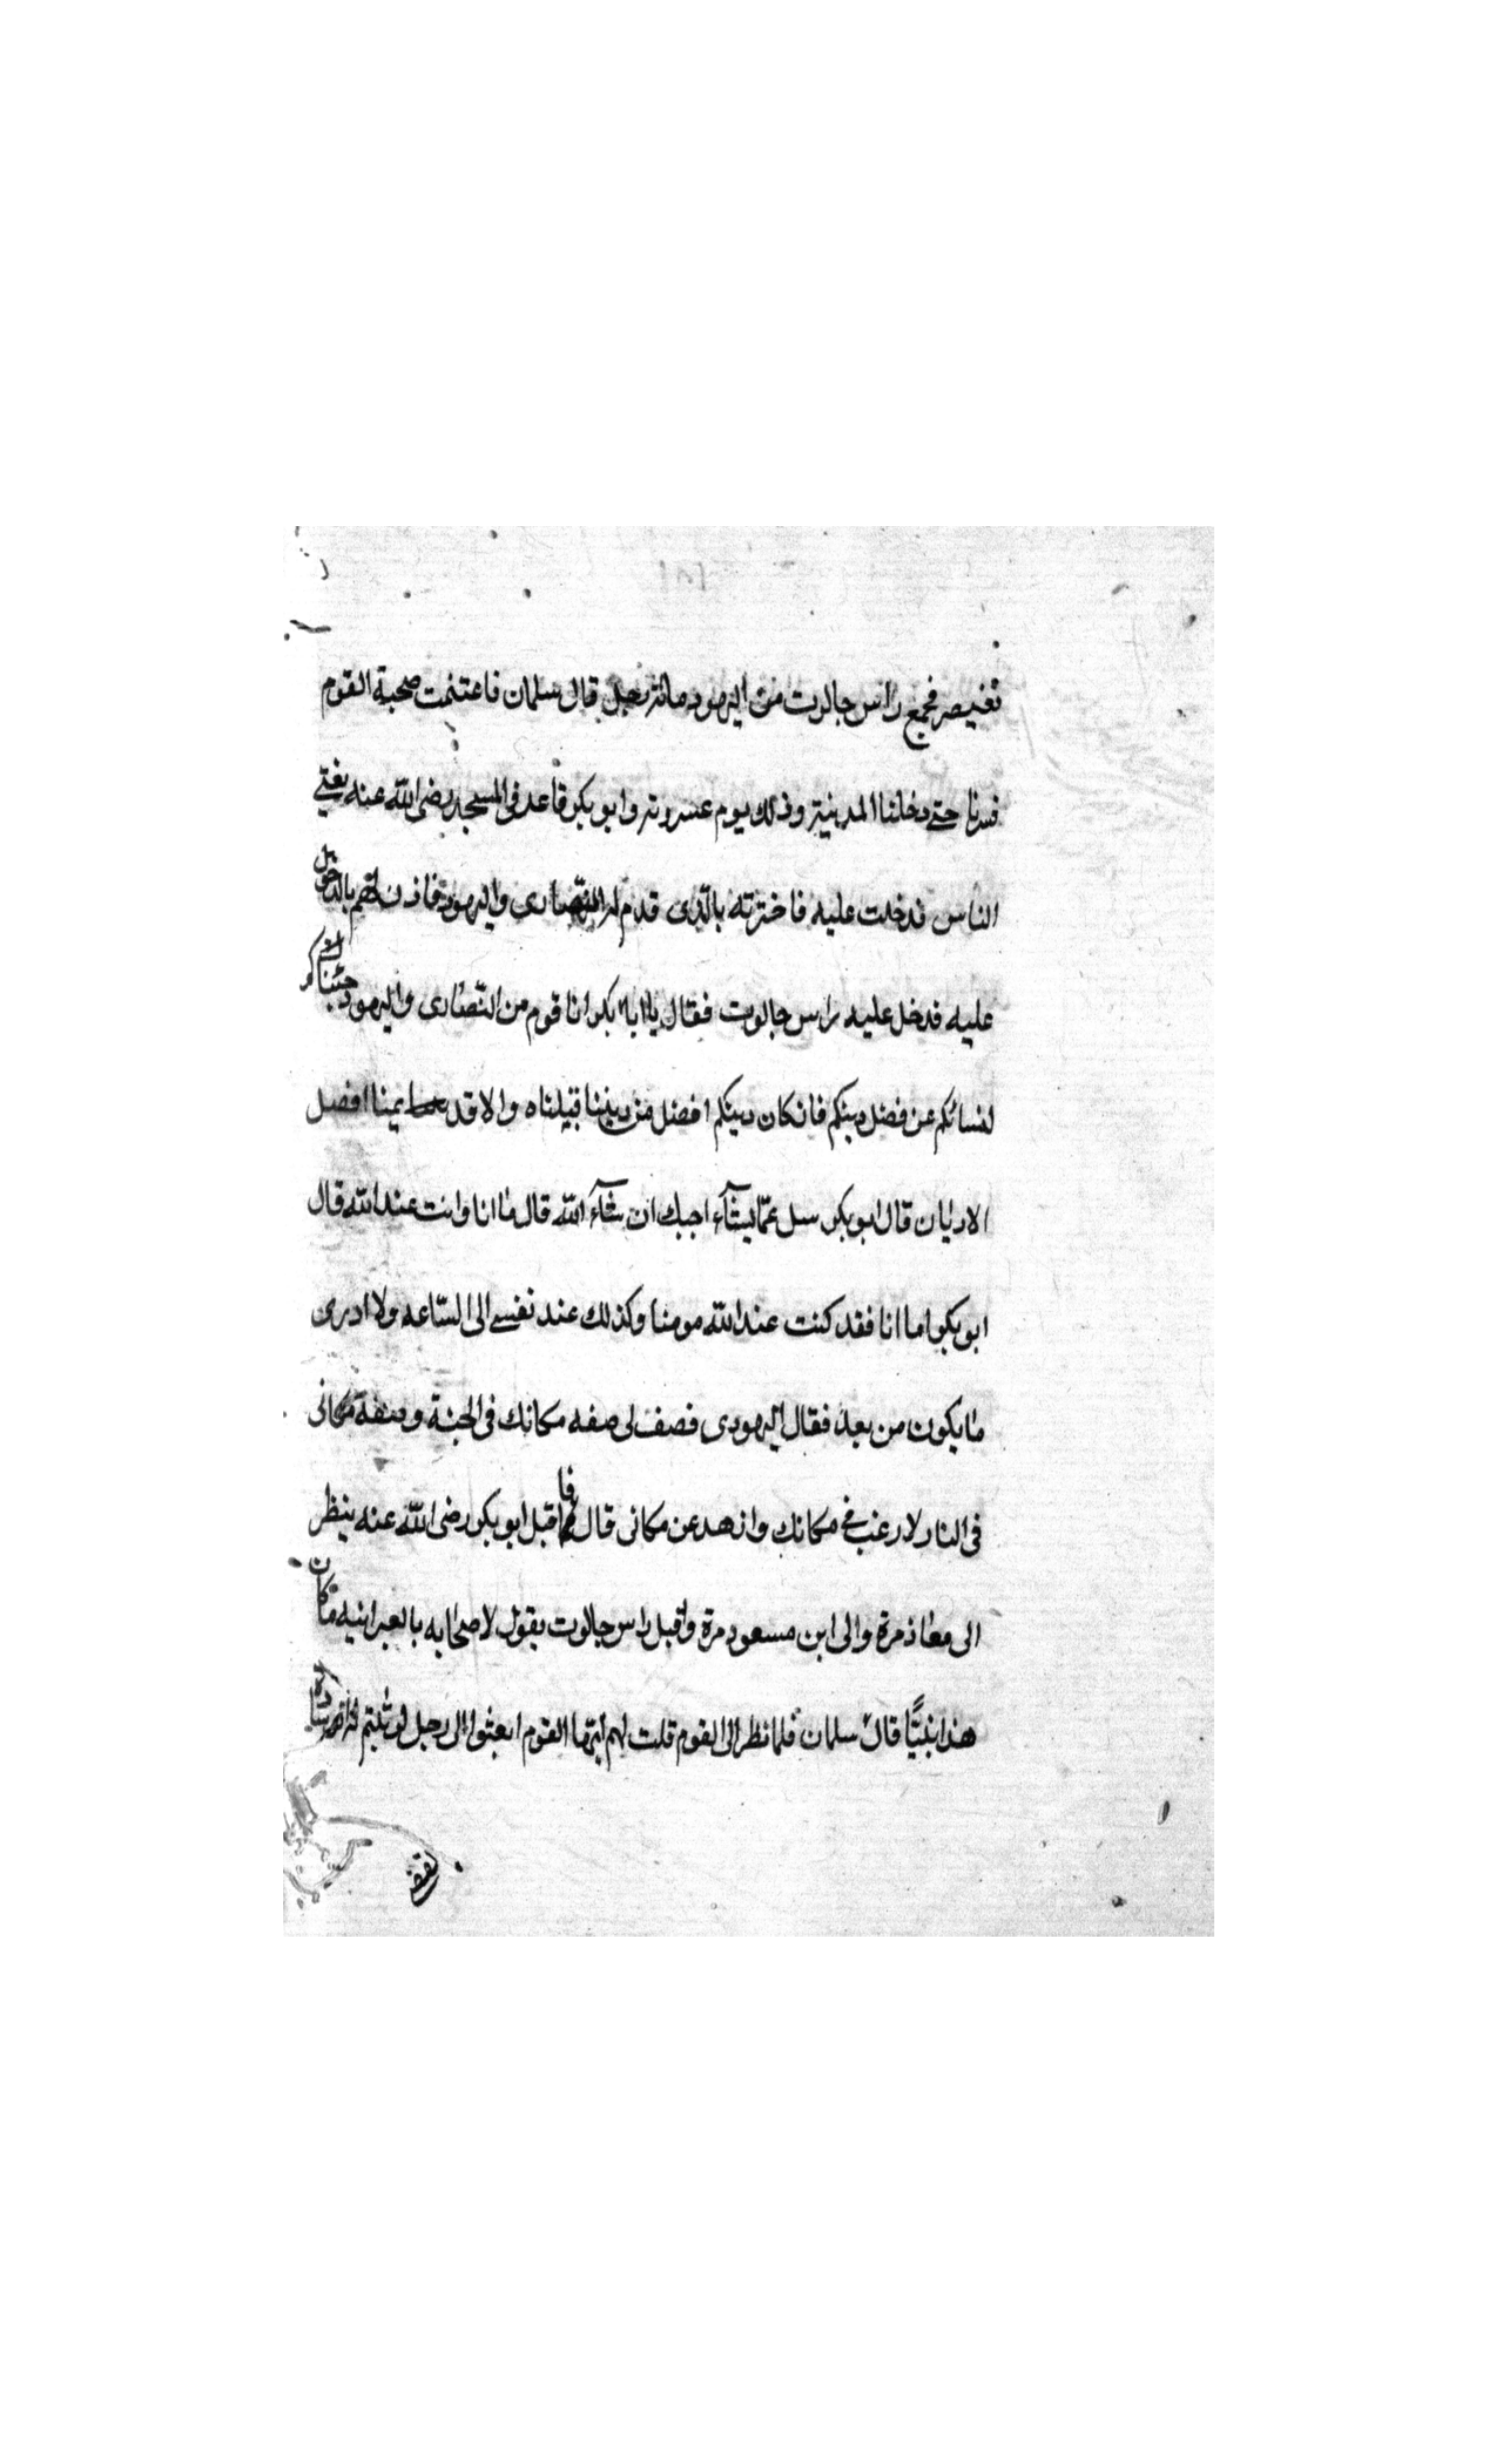 قيصر فجمع راس جالوت من اليهود مائة رجل قال سلمان فاغتنمت صحبة القوم
فسرنا حتى دخلنا المدينة وذلك يوم عروبة وابو بكر قاعد فى المسجد رضى الله عنه يفتى
الناس فدخلت عليه فاخبرته بالذى قدم له النصارى واليهود فاذن لهم بالدخول
عليه فدخل عليه راس جالوت فقال يا ابا بكر انا قوم من النصارى واليهود جئناكم
لنسائكم عن فضل دينكم فانكان دينكم افضل من ديننا قبلناه والا قد يمننا افضل
الاديان قال ابو بكر سل عمّا يشآء اجبك ان شآء الله قال ما انا وانت عند الله قال
ابو بكر اما انا فقد كنت عند الله مومنا وكذلك عند نفسى الى السّاعه ولا ادرى
ما يكون من بعد فقال اليهودى فصف لى صفه مكانك فى الجنة وصفة مكانى
فى النار لارغب فى مكانك وازهد عن مكانى قال فاقبل ابو بكر رضى الله عنه ينظر
الى معاذ مرة والى ابن مسعود مرة واقبل راس جالوت يقول لاصحابه بالعبرانيه ماكان
هذا نبيًّا قال سلمان فلما نظر الى القوم قلت لهم ايّها القوم ابعثوا الى رجل لو ثنيتم